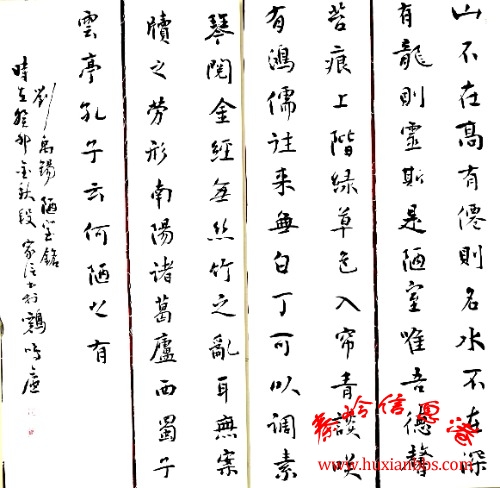 山不在高有僊則名水不在深
有龍則靈斯是陋室唯吾德馨
苔痕上階緑草色入帘青談笑
有鴻儒往来無白丁可以调素
琴閲金經無丝竹之亂耳無案
牘之劳形南陽諸葛廬西蜀子
雲亭孔子云何陋之有
劉禹錫陋室銘
時在癸卯金秋段家信書於鶴鳴廬
秦岭信息港
www.huxianbbs.com